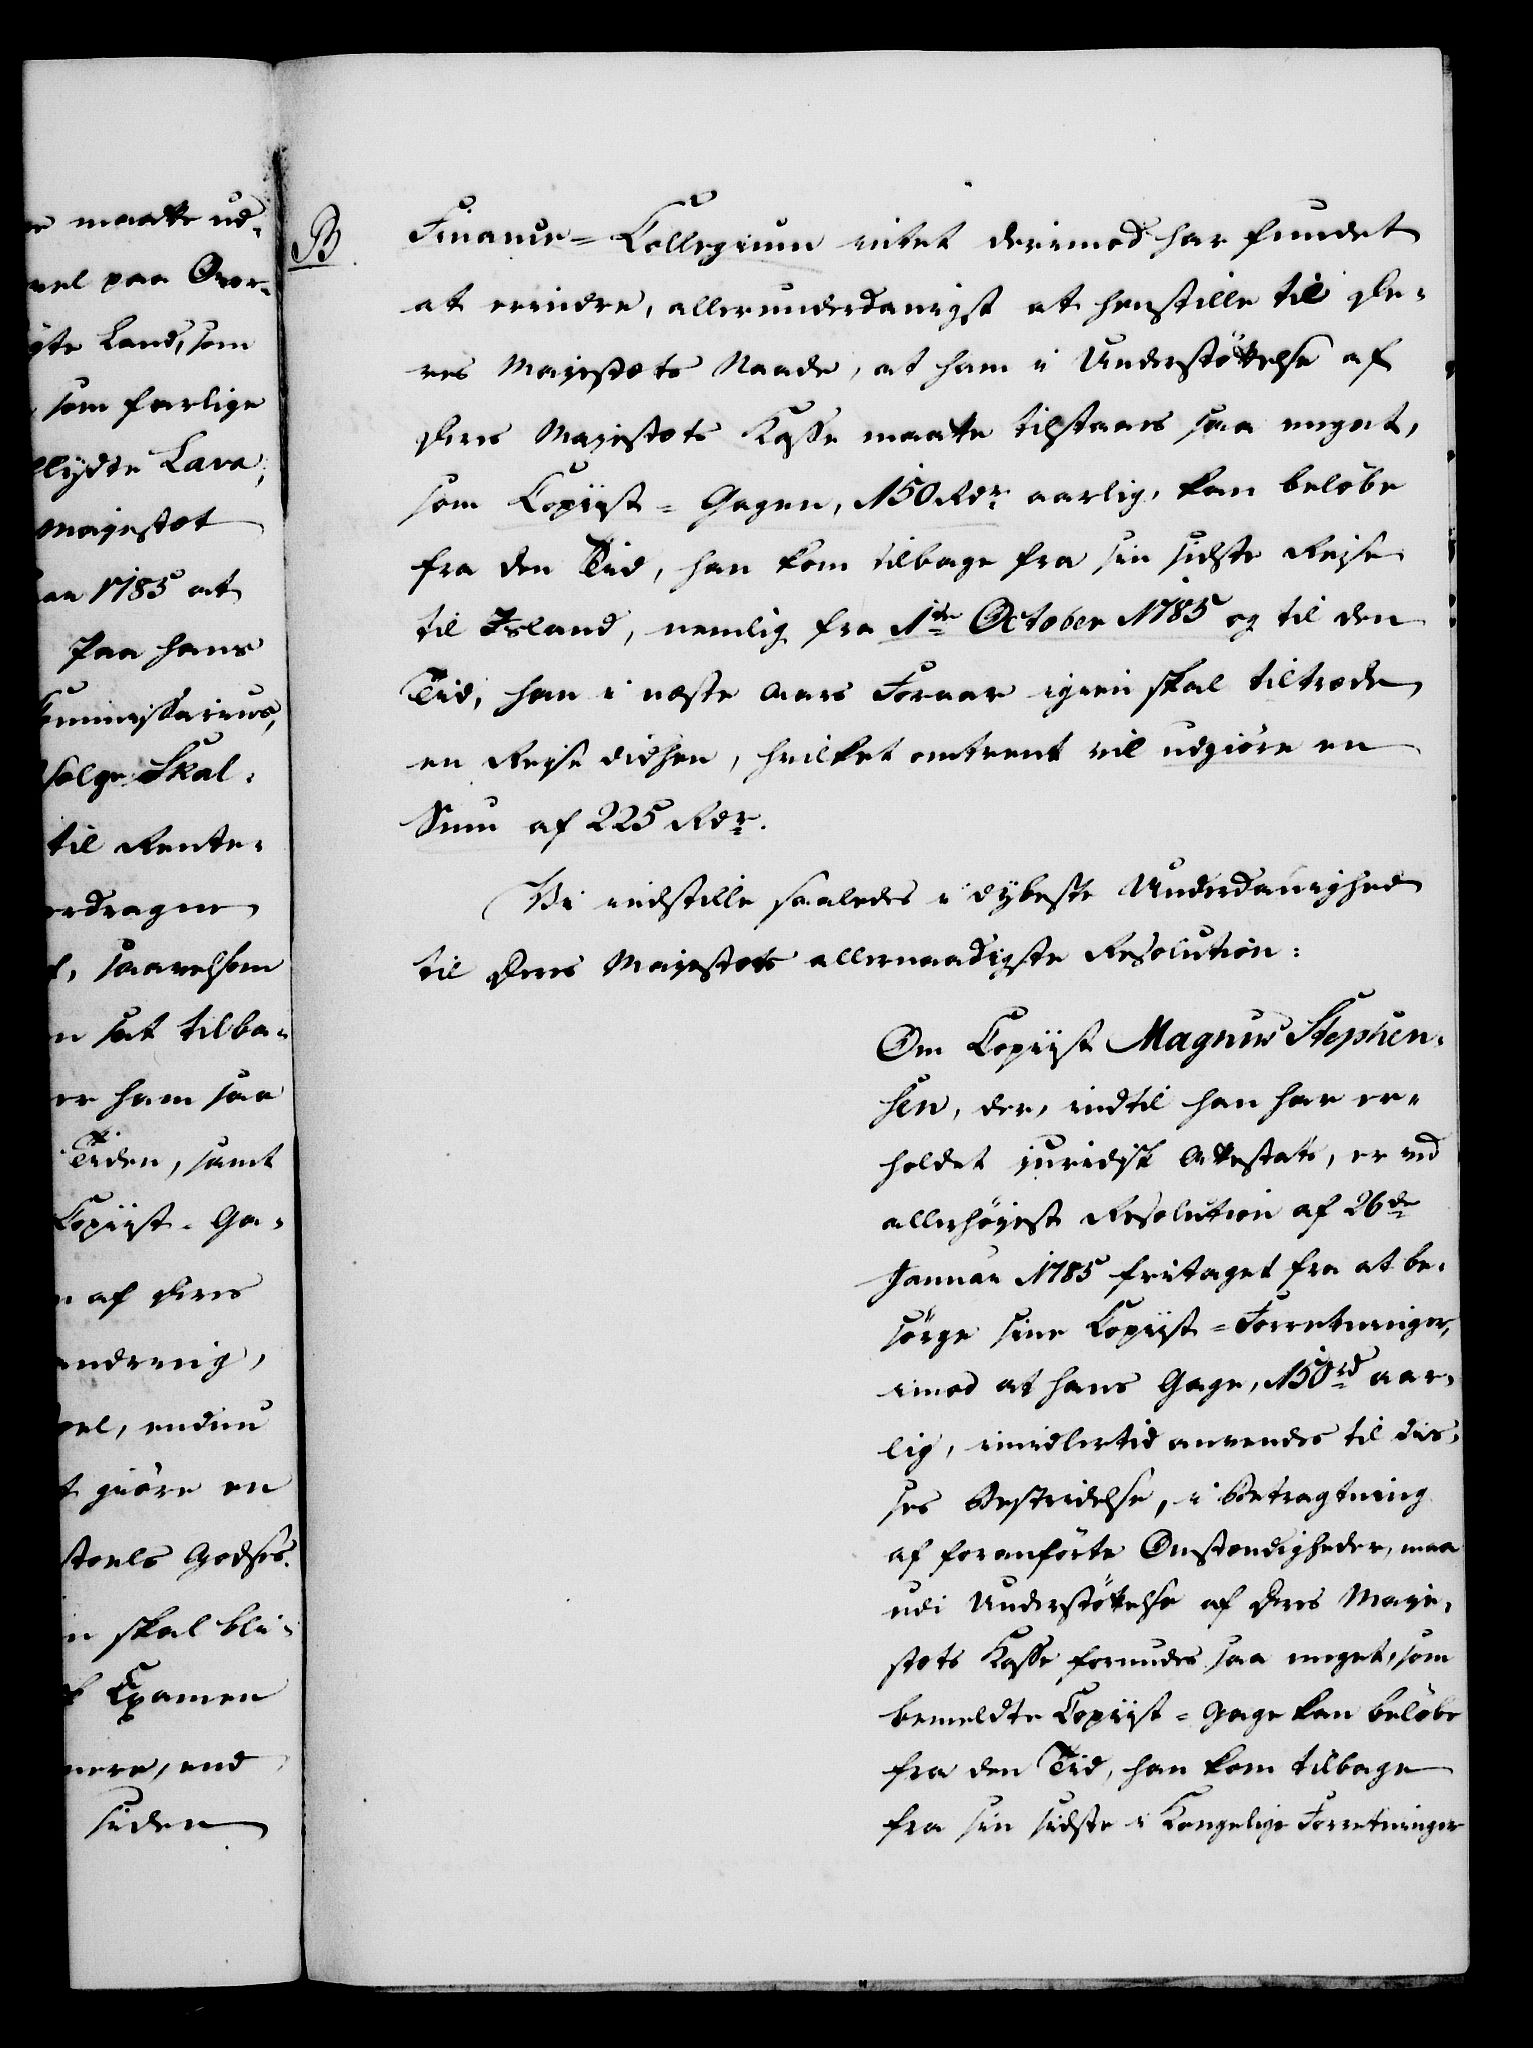 e maatte ud-
vel paa Over-
gte Land, som
som farlige
flydte Lava,
Majestæt
1785 at
Paa hans
Kommissarius,
Skal-
til Rente-
erdragne
saavelsom
n sat tilba-
er ham saa
Tiden, samt
Copiist-Ga-
n af Deres
endnu
t giöre en
stoels Godses.
n skal bli-
Examen
mere, end
siden
B
Finance-Collegium intet derimod har fundet
at erindre, allerunderdanigst at henstille til De-
res Majestæts Naade, at ham i Understöttelse af
Deres Majestæts Kasse maatte tilstaaes saa meget,
som Copiist-Gagen, 150 Rdr aarlig, kan belöbe
fra den Tid, han kom tilbage fra sin sidste Reise
til Island, nemlig fra 1te October 1785 og til den
Tid, han i næste Aars Foraar igien skal tiltræde
en Reise didhen, hvilket omtrent vil udgiöre en
Sum af 225 Rdr.
Vi indstille saaledes i dybeste Underdanighed
til Deres Majestæts allernaadigste Resolution:
Om Copiist Magnus Stephen-
sen, der, indtil han har er-
holdet juridisk Attestats, er ved
allerhöyeste Resolution af 26de
Januar 1785 fritaget fra at be-
sörge sine Copiist-Forretninger,
imod at hans Gage, 150 rd aar-
lig, imidlertid anvendes til dis-
ses Bestridelse, i Betragtning
af foranförte Omstændigheder, maa
udi Understöttelse af Deres Maje-
stæts Kasse forundes saa meget, som
bemeldte Copiist-Gage kan belöbe
fra den Tid, han kom tilbage
fra sin sidste i Kongelige Forretninger